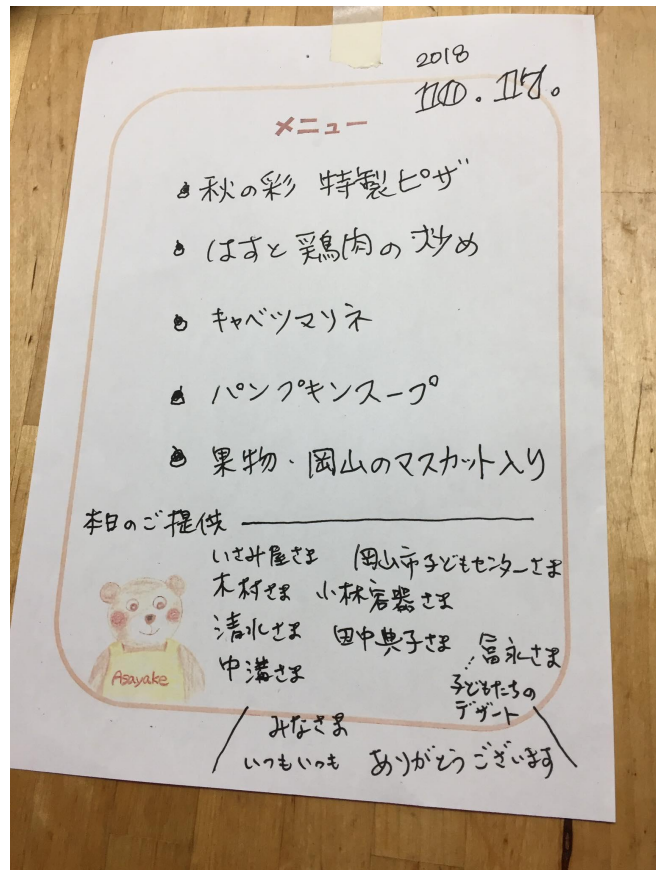 2018
10.17.
メニュー
秋の彩 特製ピザ
はすと鶏肉の炒め
キャベツマリネ
パンプキンスープ
果物・岡山のマスカット入り
本日のご提供
いさみ屋さま 岡山市子どもセンターさま
木村さま 小林容器さま
清水さま 田中典子さま 冨永さま
中溝さま 子どもたちの
デザート
Asayake
みなさま
いつもいつも ありがとうございます